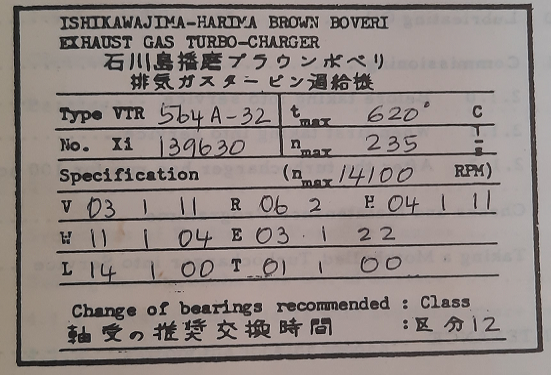 ISHIKAWAJIMA-HARIMA BROWN BOVERI
EXHAUST GAS TURBO-CHARGER
石川島播磨ブラウンボベリ
排気ガスタービン過給機
Type VTR 564A-32 t max 620° C
No. Xi 139630 n max 235 1/s
Specification (n max 14100 RPM)
V 03 1 11 R 06 2 H 04 1 11
W 11 1 04 E 03 1 22
L 14 1 00 T 01 1 00
Change of bearings recommended : Class
軸受の推奨交換時間 : 区分12